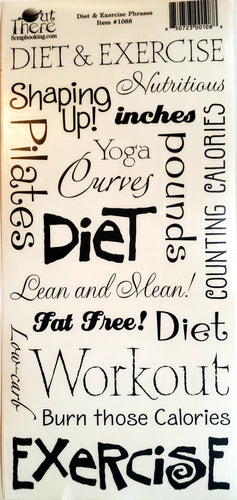 Out There
Scrapbooking.com
Diet & Exercise Phrases
Item #1088
DIET & EXERCISE
Shaping Up!
Nutritious
inches
Pilates
Yoga
pounds
COUNTING CALORIES
Curves
DIET
Lean and Mean!
Fat Free!
Diet
Low-carb
Workout
Burn those Calories
EXERCISE